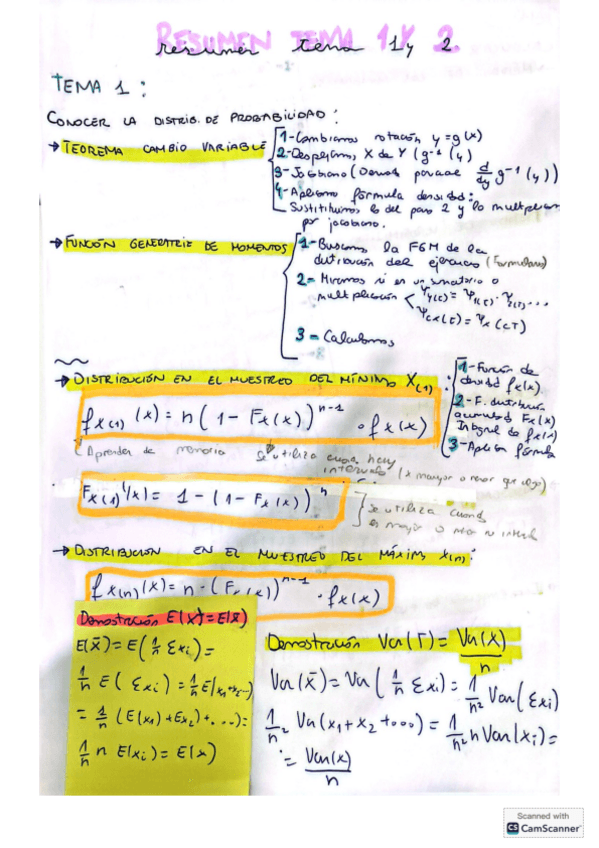 RESUMEN TEMA 1 Y 2.
resumen tema 1 y 2
TEMA 1:
CONOCER LA DISTRIB. DE PROBABILIDAD:
→ TEOREMA CAMBIO VARIABLE
1-Cambiamos rotación y=g(x)
2-Despejamos X de Y (g⁻¹(y)
3-Jacobiano ( d/dy g⁻¹(y))
4-Aplicamos fórmula densidad:
Sustituimos lo del paso 2 y lo multiplicamos
por jacobiano.
→ FUNCIÓN GENERATRIZ DE MOMENTOS
1-Buscamos la FGM de la
distribución del ejercicio (Formulario)
2-Miramos si es un sumatorio o
multiplicación
3-Calculamos
→ DISTRIBUCIÓN EN EL MUESTREO DEL MÍNIMO X(1):
1-Función de
densidad fx(x).
2-F. distribución
acumulada Fx(x)
Integral de fx(x)
3-Aplico fórmula
fx(1)(x) = n(1-Fx(x))ⁿ⁻¹ · fx(x)
Aprender de memoria
se utiliza cuando hay
intervalo (x mayor o menor que algo)
Fx(1)(x) = 1-(1-Fx(x))ⁿ
se utiliza cuando
es mayor o menor
→ DISTRIBUCIÓN EN EL MUESTREO DEL MÁXIMO X(n):
fx(n)(x) = n·(Fx(x))ⁿ⁻¹ · fx(x)
Demostración E(x̄)=E(x)
E(x̄)=E(1/n Σxi)=
1/n E(Σxi)=1/n E(x1+x2...)
=1/n (E(x1)+Ex2)+...)=
1/n n E(xi)=E(x)
Demostración Var(x̄)=Var(X)/n
Var(x̄)=Var(1/n Σxi)=1/n² Var(Σxi)
1/n² Var(x1+x2+...)=1/n² n Var(xi)=
=Var(x)/n
Scanned with
CS CamScanner